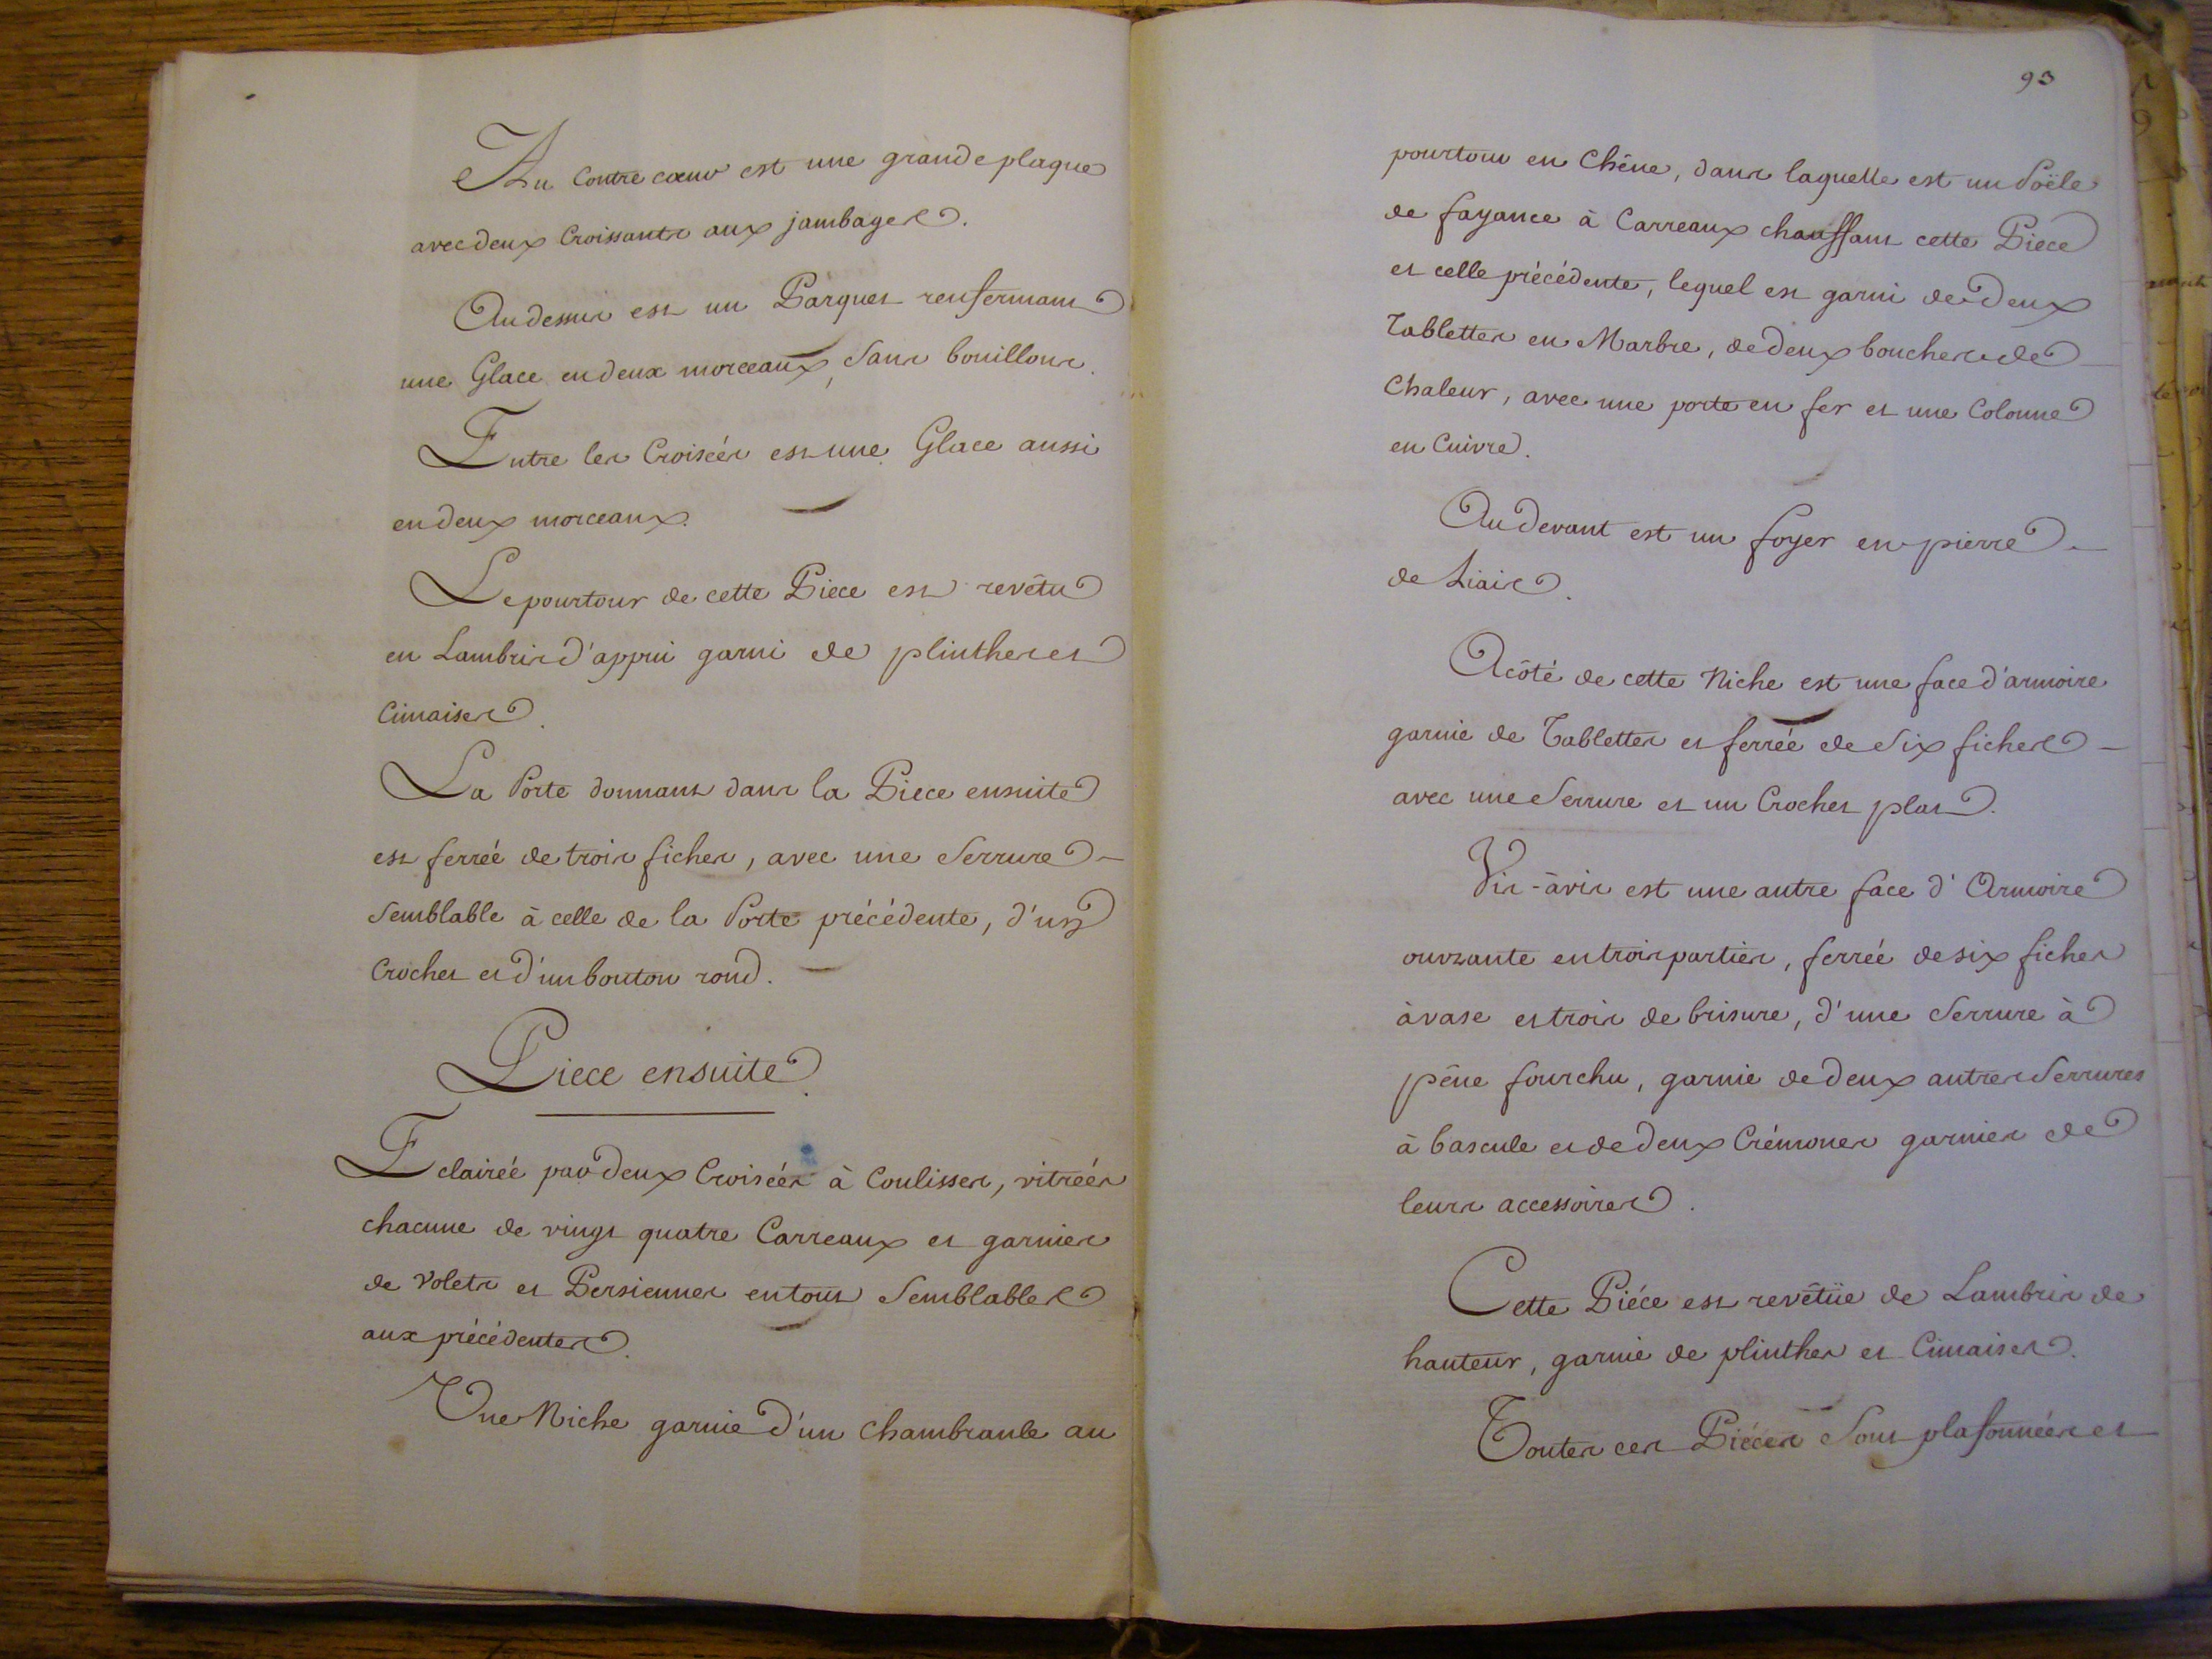 Au Contre cœur est une grande plaque
avec deux Croissants aux jambages.
Au dessus est un Parquet renfermant
une Glace en deux morceaux, sans bouillons.
Entre les Croisées est une Glace aussi
en deux morceaux.
Le pourtour de cette Piece est revêtu
en Lambris d'appui garni de plinthes et
Cimaises.
La Porte donnant dans la Piece ensuite
est ferrée de trois fiches, avec une Serrure
Semblable à celle de la Porte précédente, d'un
Crochet et d'un bouton rond.
Piece ensuite.
Eclairée par deux Croisées à Coulisses, vitrées
chacune de vingt quatre Carreaux et garnies
de Volets et Persiennes en tout Semblables
aux précédentes.
Une Niche garnie d'un Chambranle au
93
pourtour en Chêne, dans laquelle est un Poële
de fayance à Carreaux chauffant cette Piece
et celle précédente, lequel est garni de deux
Tablettes en Marbre, de deux bouches de
Chaleur, avec une porte en fer et une Colonne
en Cuivre.
Au devant est un foyer en pierre
de Liais.
A côté de cette Niche est une face d'armoire
garnie de Tablettes et ferrée de Six fiches
avec une Serrure et un Crochet plat.
Vis-àvis est une autre face d'Armoire
ouvrante en trois parties, ferrée de six fiches
à vase et trois de brisure, d'une Serrure à
pêne fourchu, garnie de deux autres Serrures
à bascule et de deux Crémones garnies de
leurs accessoires.
Cette Piéce est revêtüe de Lambris de
hauteur, garnie de plinthes et Cimaises.
Toutes ces Piéces Sont plafonnées et